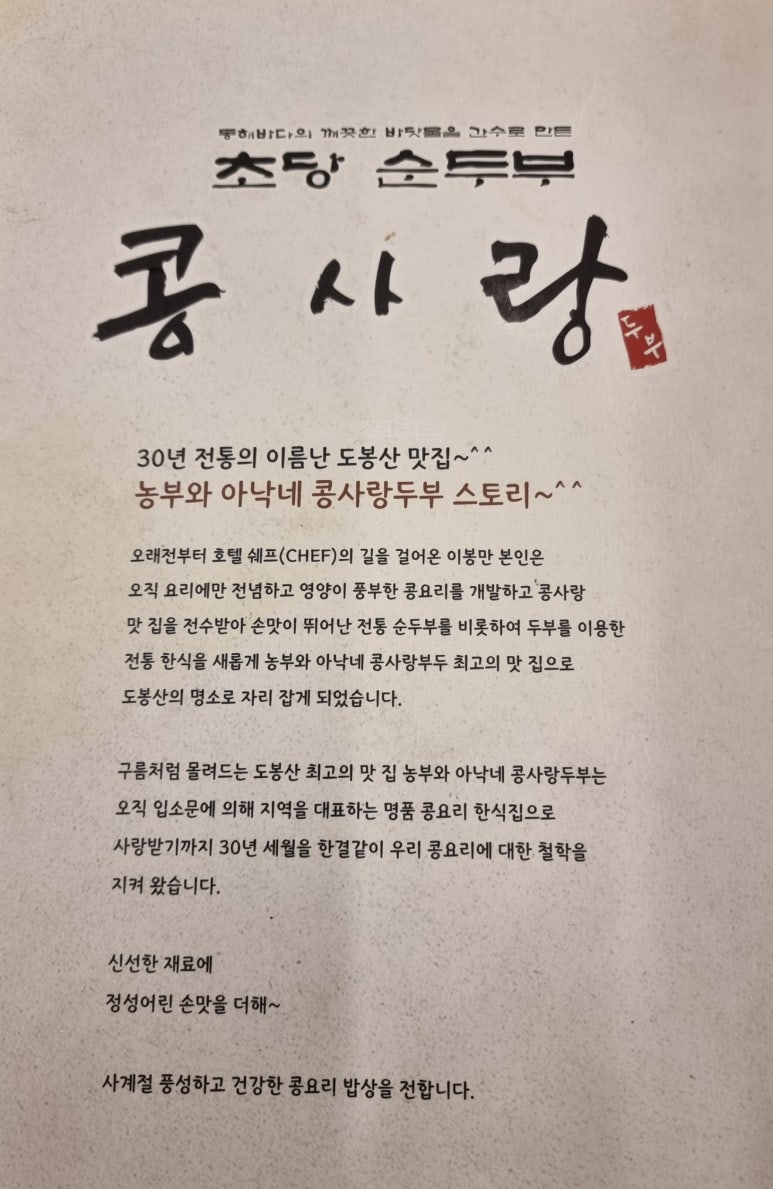 동해바다의 깨끗한 바닷물을 간수로 만든
초당 순두부
콩 사 랑
두부
30년 전통의 이름난 도봉산 맛집~^^
농부와 아낙네 콩사랑두부 스토리~^^
오래전부터 호텔 쉐프(CHEF)의 길을 걸어온 이봉만 본인은
오직 요리에만 전념하고 영양이 풍부한 콩요리를 개발하고 콩사랑
맛 집을 전수받아 손맛이 뛰어난 전통 순두부를 비롯하여 두부를 이용한
전통 한식을 새롭게 농부와 아낙네 콩사랑부두 최고의 맛 집으로
도봉산의 명소로 자리 잡게 되었습니다.
구름처럼 몰려드는 도봉산 최고의 맛 집 농부와 아낙네 콩사랑두부는
오직 입소문에 의해 지역을 대표하는 명품 콩요리 한식집으로
사랑받기까지 30년 세월을 한결같이 우리 콩요리에 대한 철학을
지켜 왔습니다.
신선한 재료에
정성어린 손맛을 더해~
사계절 풍성하고 건강한 콩요리 밥상을 전합니다.